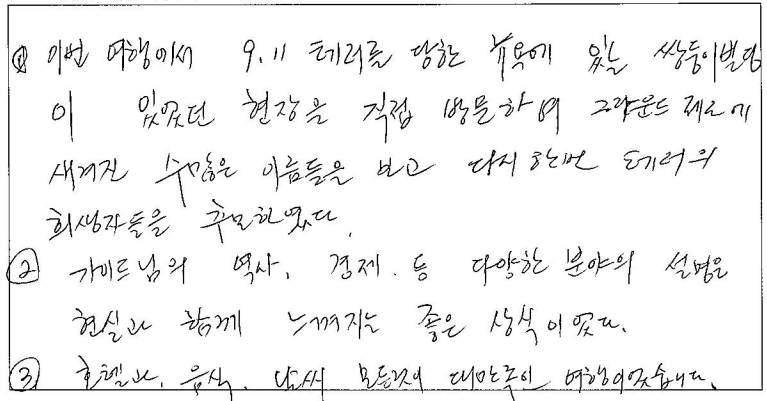 ① 이번 여행에서 9.11 테러를 당한 뉴욕에 있는 쌍둥이빌딩
이 있었던 현장을 직접 방문하며 그라운드 제로에
새겨진 수많은 이름들을 보고 다시 한번 테러의
희생자들을 추모하였다.
② 가이드님의 역사, 경제. 등 다양한 분야의 설명은
현실과 함께 느껴지는 좋은 상식이었다.
③ 호텔과, 음식, 날씨 모든것이 대만족인 여행이었습니다.